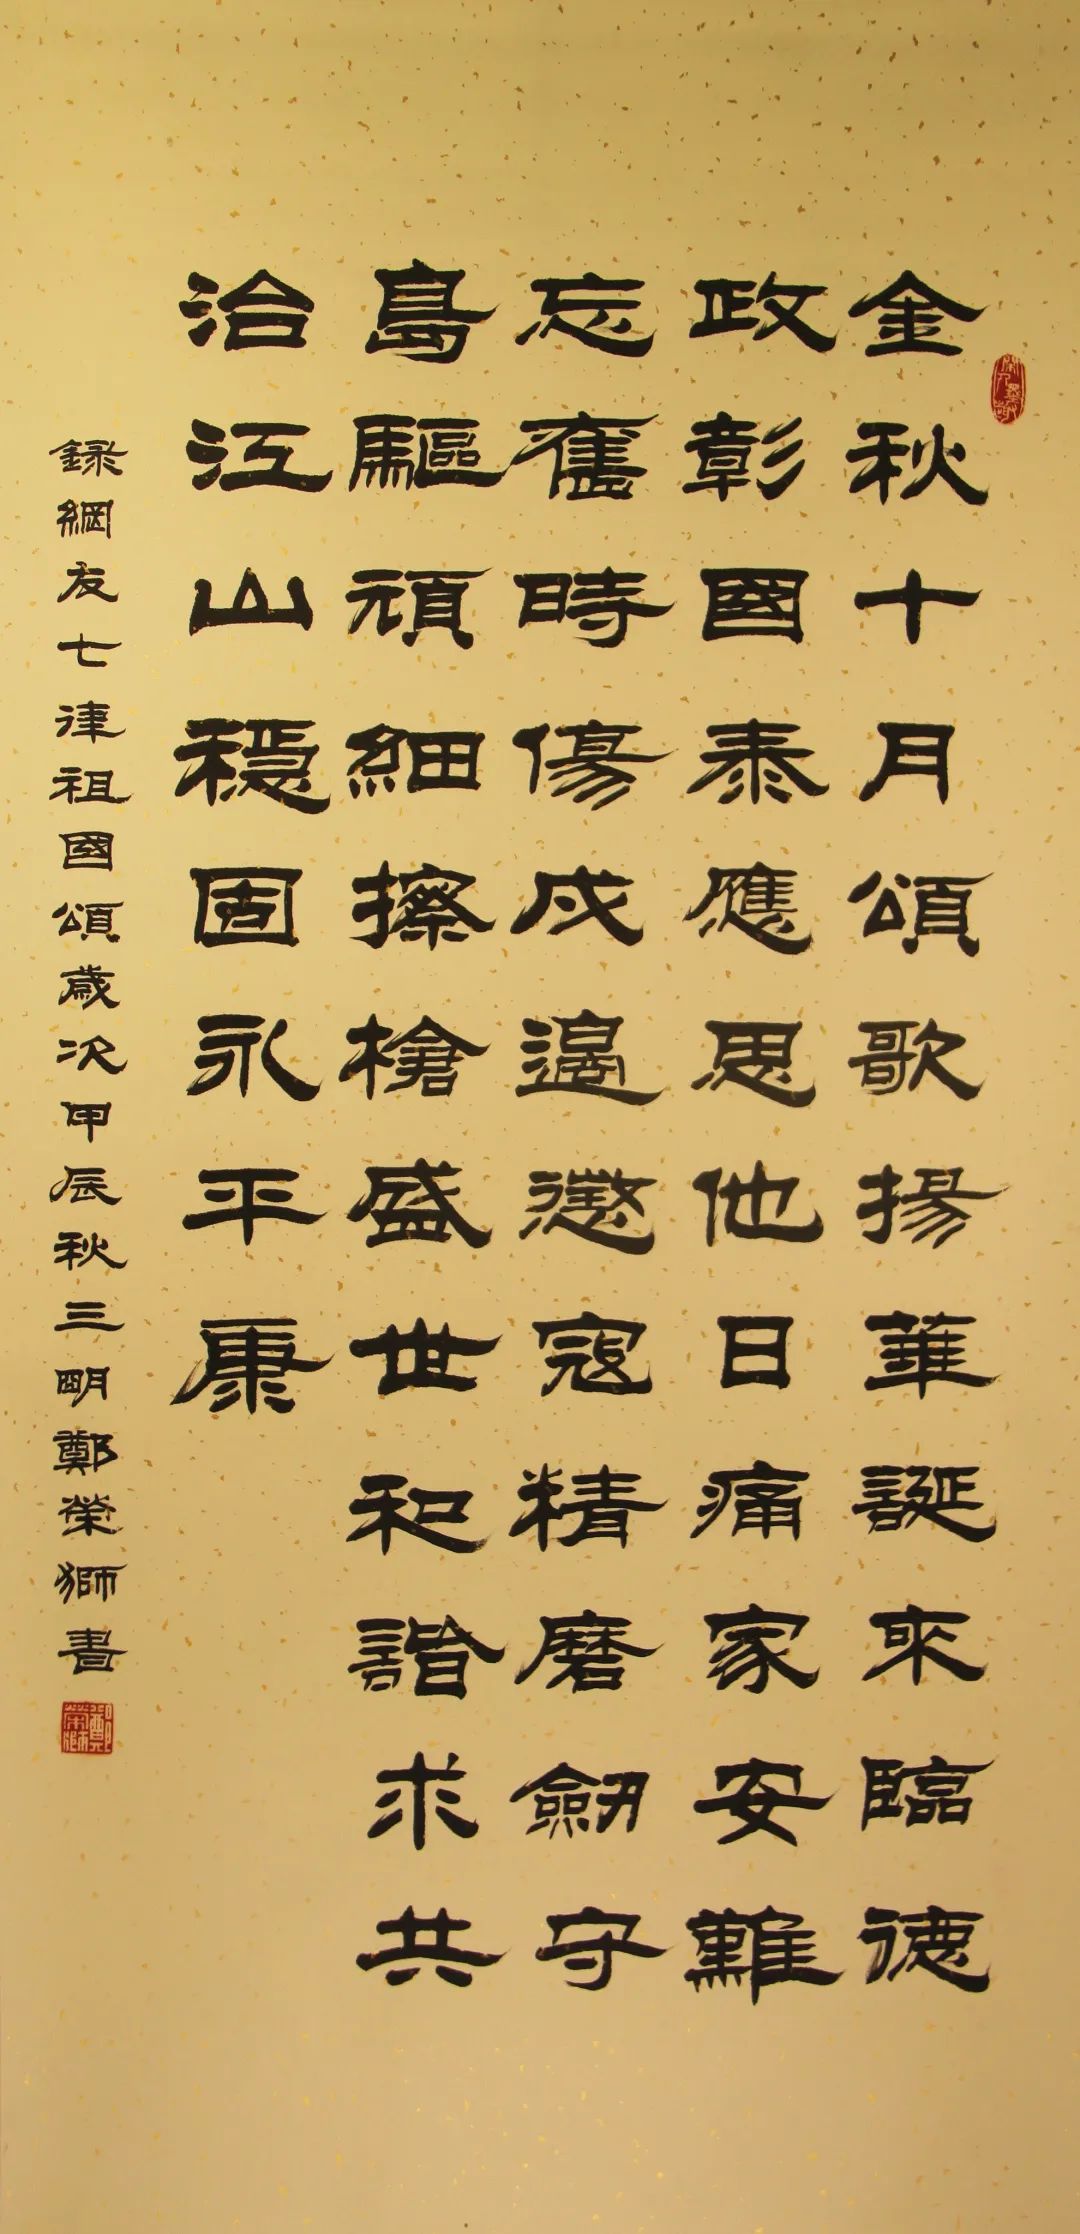 金秋十月頌歌揚華誕來臨德
政彰國泰應思他日痛家安難
忘舊時傷戍邊懲寇精磨劍守
島驅頑細擦槍盛世和諧求共
治江山穩固永平康
録網友七律祖國頌歲次甲辰秋三明鄭榮獅書